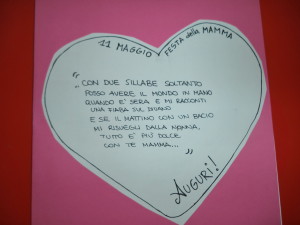 11 MAGGIO
FESTA della MAMMA
"CON DUE SILLABE SOLTANTO
POSSO AVERE IL MONDO IN MANO
QUANDO E' SERA E MI RACCONTI
UNA FIABA SUL DIVANO
E SE IL MATTINO CON UN BACIO
MI RISVEGLI DALLA NANNA,
TUTTO E' PIÙ DOLCE
CON TE MAMMA..."
AUGURI!